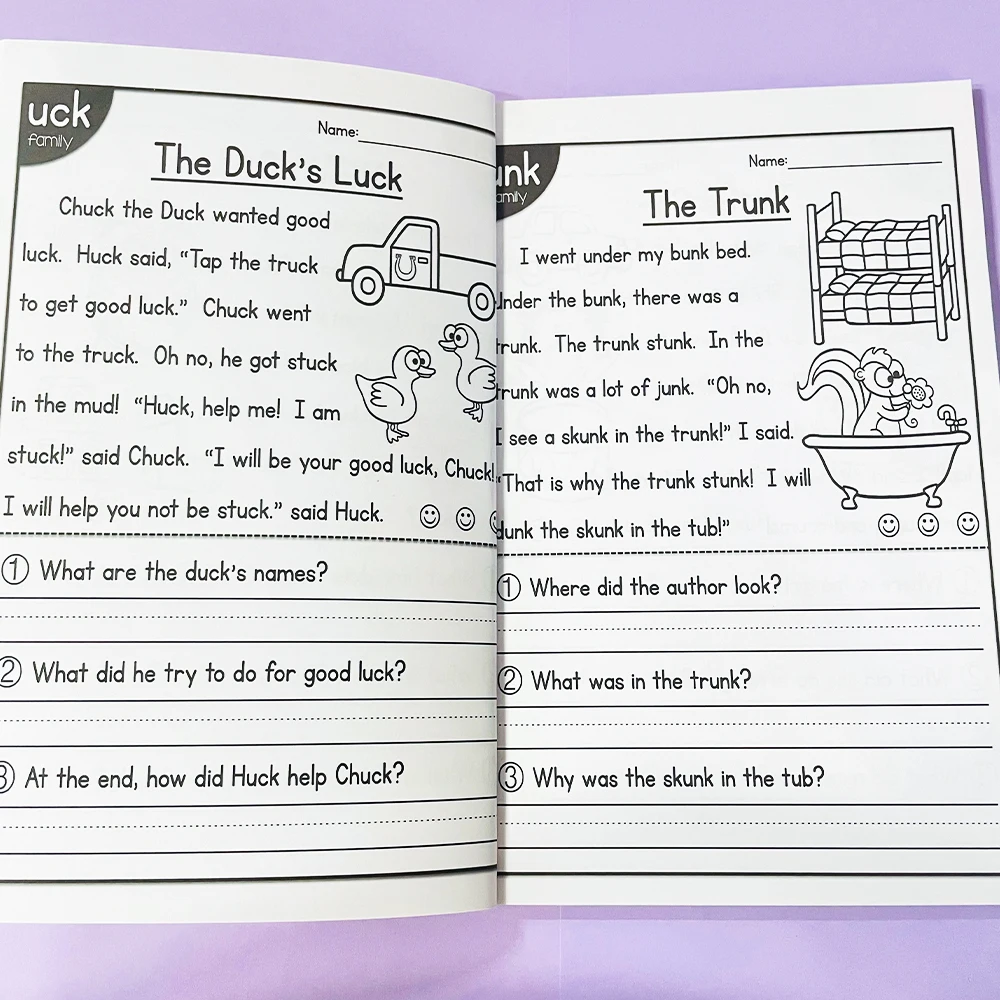 uck
family
Name:
The Duck's Luck
Chuck the Duck wanted good
luck. Huck said, "Tap the truck
to get good luck." Chuck went
to the truck. Oh no, he got stuck
in the mud! "Huck, help me! I am
stuck!" said Chuck. "I will be your good luck, Chuck!
I will help you not be stuck." said Huck.
1 What are the duck's names?
2 What did he try to do for good luck?
3 At the end, how did Huck help Chuck?
unk
family
Name:
The Trunk
I went under my bunk bed.
Under the bunk, there was a
trunk. The trunk stunk. In the
trunk was a lot of junk. "Oh no,
I see a skunk in the trunk!" I said.
"That is why the trunk stunk! I will
dunk the skunk in the tub!"
1 Where did the author look?
2 What was in the trunk?
3 Why was the skunk in the tub?